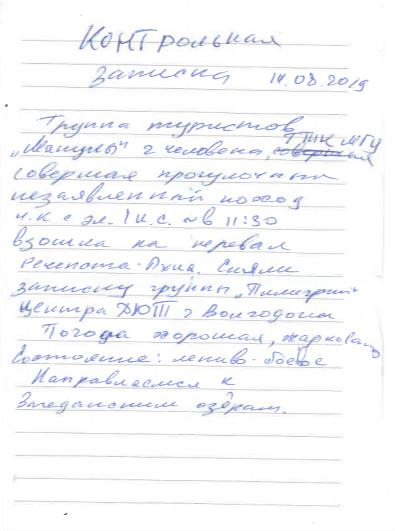 Контрольная
записка 14.08.2019
Группа туристов ТПК МГУ
2 человека,
совершая прогулочный
незаявленный поход
н.к с эл. 1 к.с. ~ в 11:30
взошла на перевал
Речепста. Сняли
записку группы „Пилигрим"
центра ДЮТ г Волгодонск
Погода хорошая, жарковато
Состояние: лениво-боевое
Направляемся к
Загеданским озёрам.